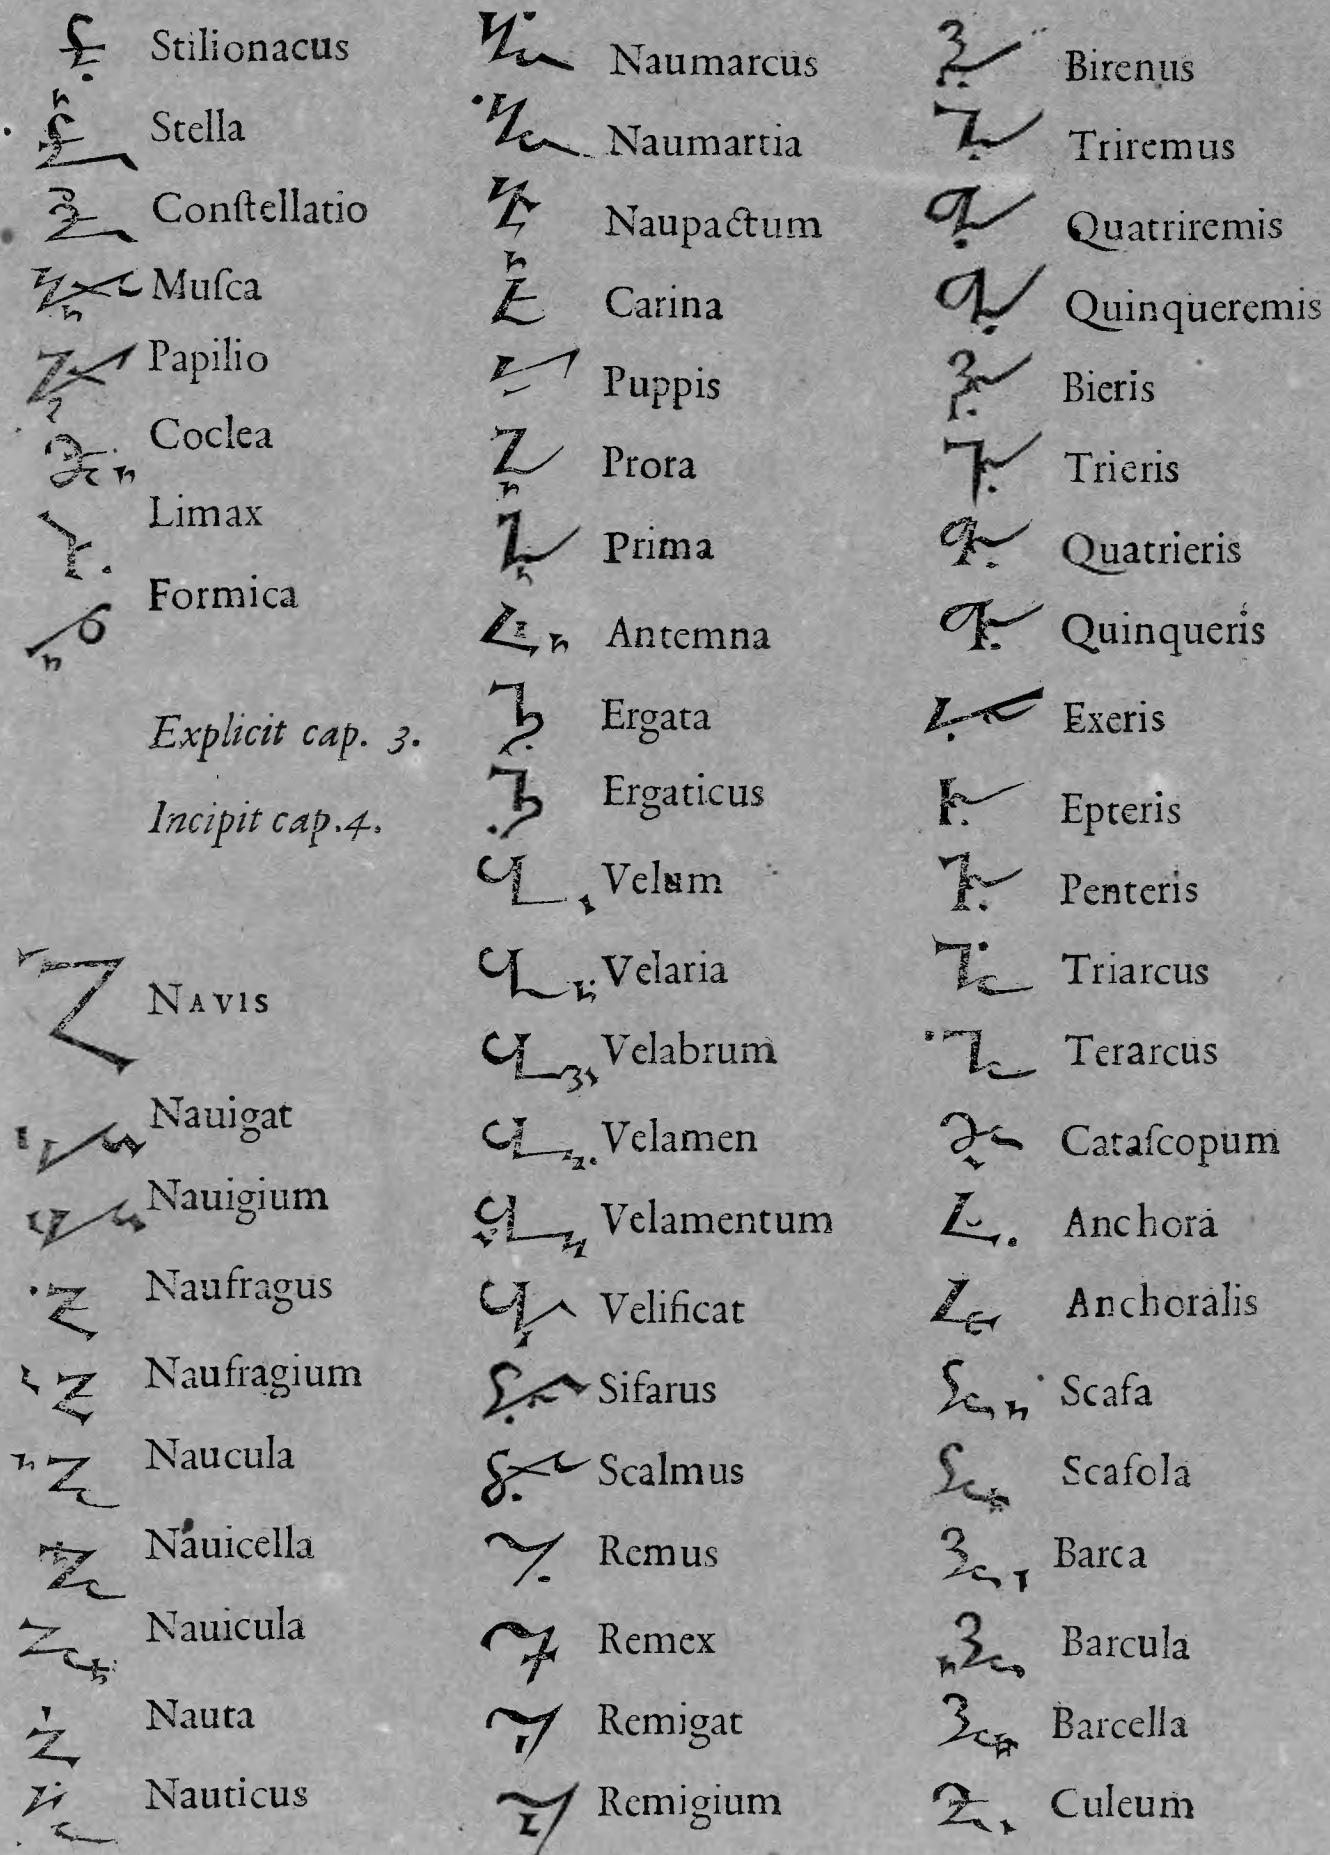 Stilionacus
Stella
Conſtellatio
Muſca
Papilio
Coclea
Limax
Formica
Explicit cap. 3.
Incipit cap.4.
NAVIS
Nauigat
Nauigium
Naufragus
Naufragium
Naucula
Nauicella
Nauicula
Nauta
Nauticus
Naumarcus
Naumartia
Naupactum
Carina
Puppis
Prora
Prima
Antemna
Ergata
Ergaticus
Velum
Velaria
Velabrum
Velamen
Velamentum
Velificat
Sifarus
Scalmus
Remus
Remex
Remigat
Remigium
Birenus
Triremus
Quatriremis
Quinqueremis
Bieris
Trieris
Quatrieris
Quinqueris
Exeris
Epteris
Penteris
Triarcus
Terarcus
Cataſcopum
Anchora
Anchoralis
Scafa
Scafola
Barca
Barcula
Barcella
Culeum